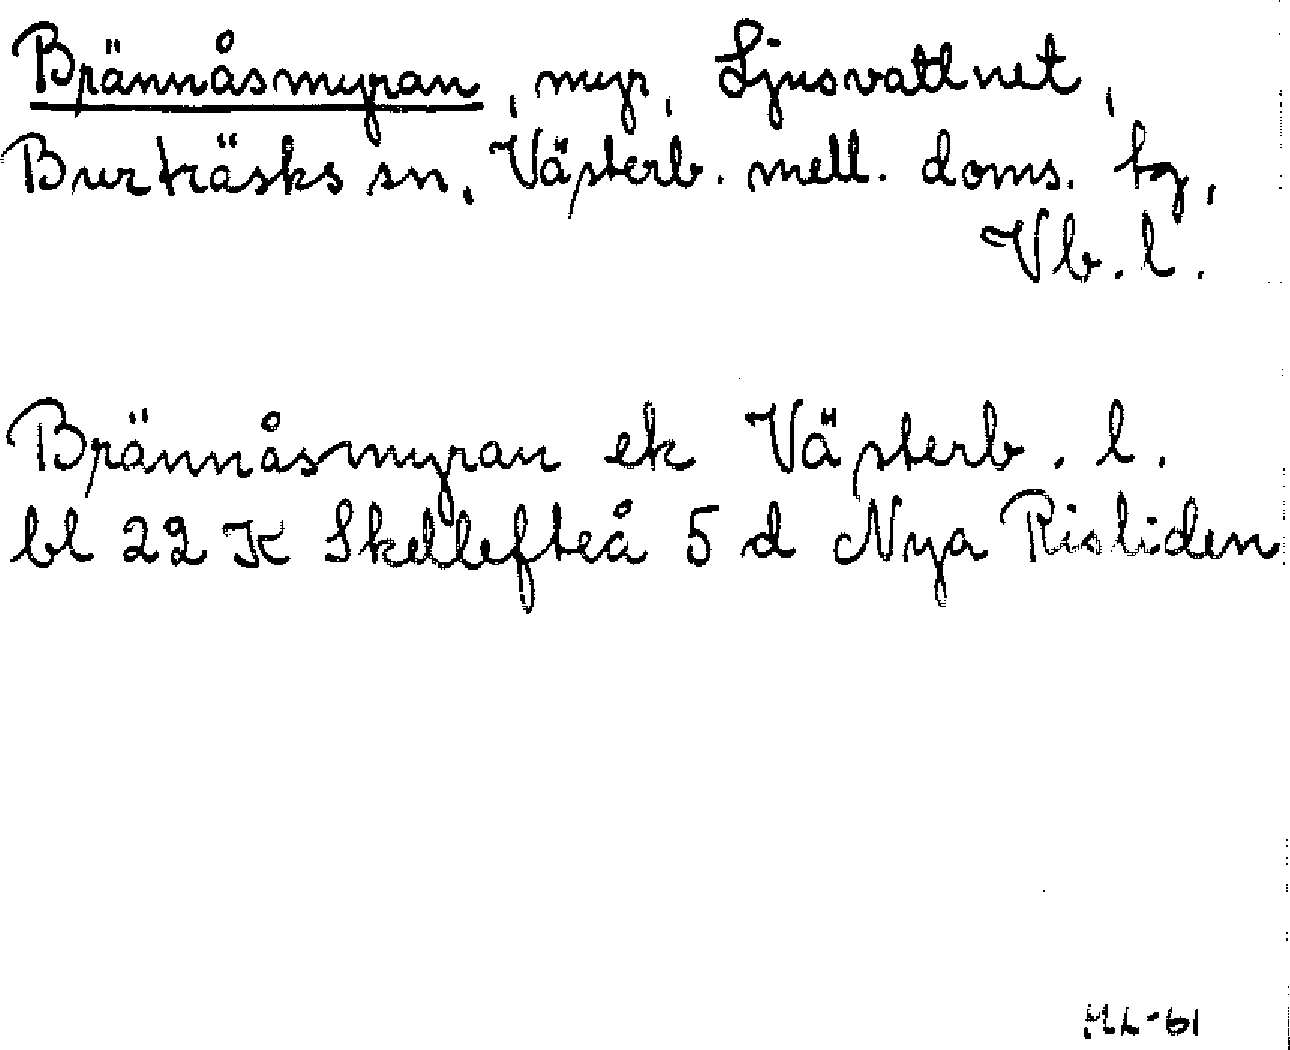 Brännåsmyran, myr, Ljusvattnet,
Burträsks sn, Västerb. mell. doms. tg,
Vb. l.
Brännåsmyran ek Västerb. l.
bl 22 K Skellefteå 5 d Nya Risliden
ML-61